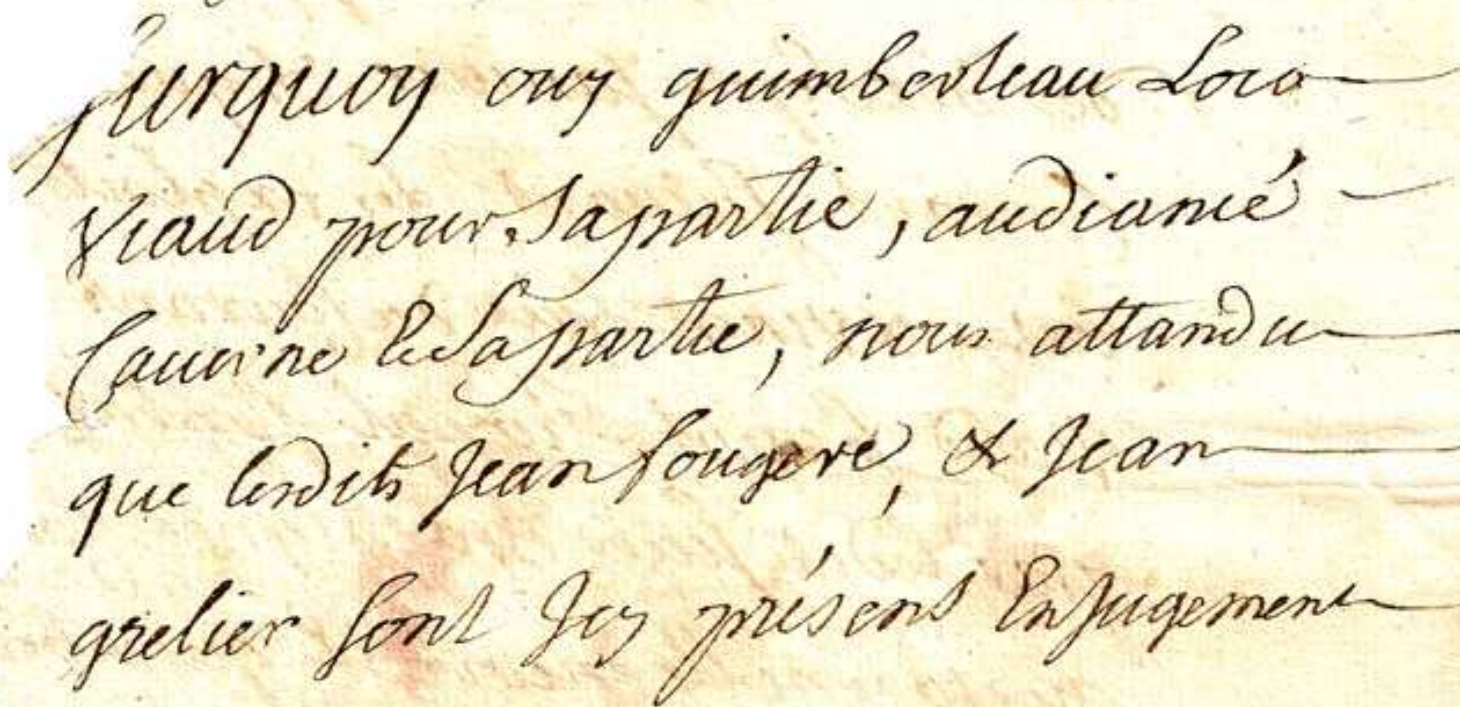 surquoy ouy guimberteau Loco
Viaud pour sa partie, audiancé
Cauerne & sa partie, nous attandu
que lesdits Jean fougere, & Jean
grelier sont Jcy présens En Jugement